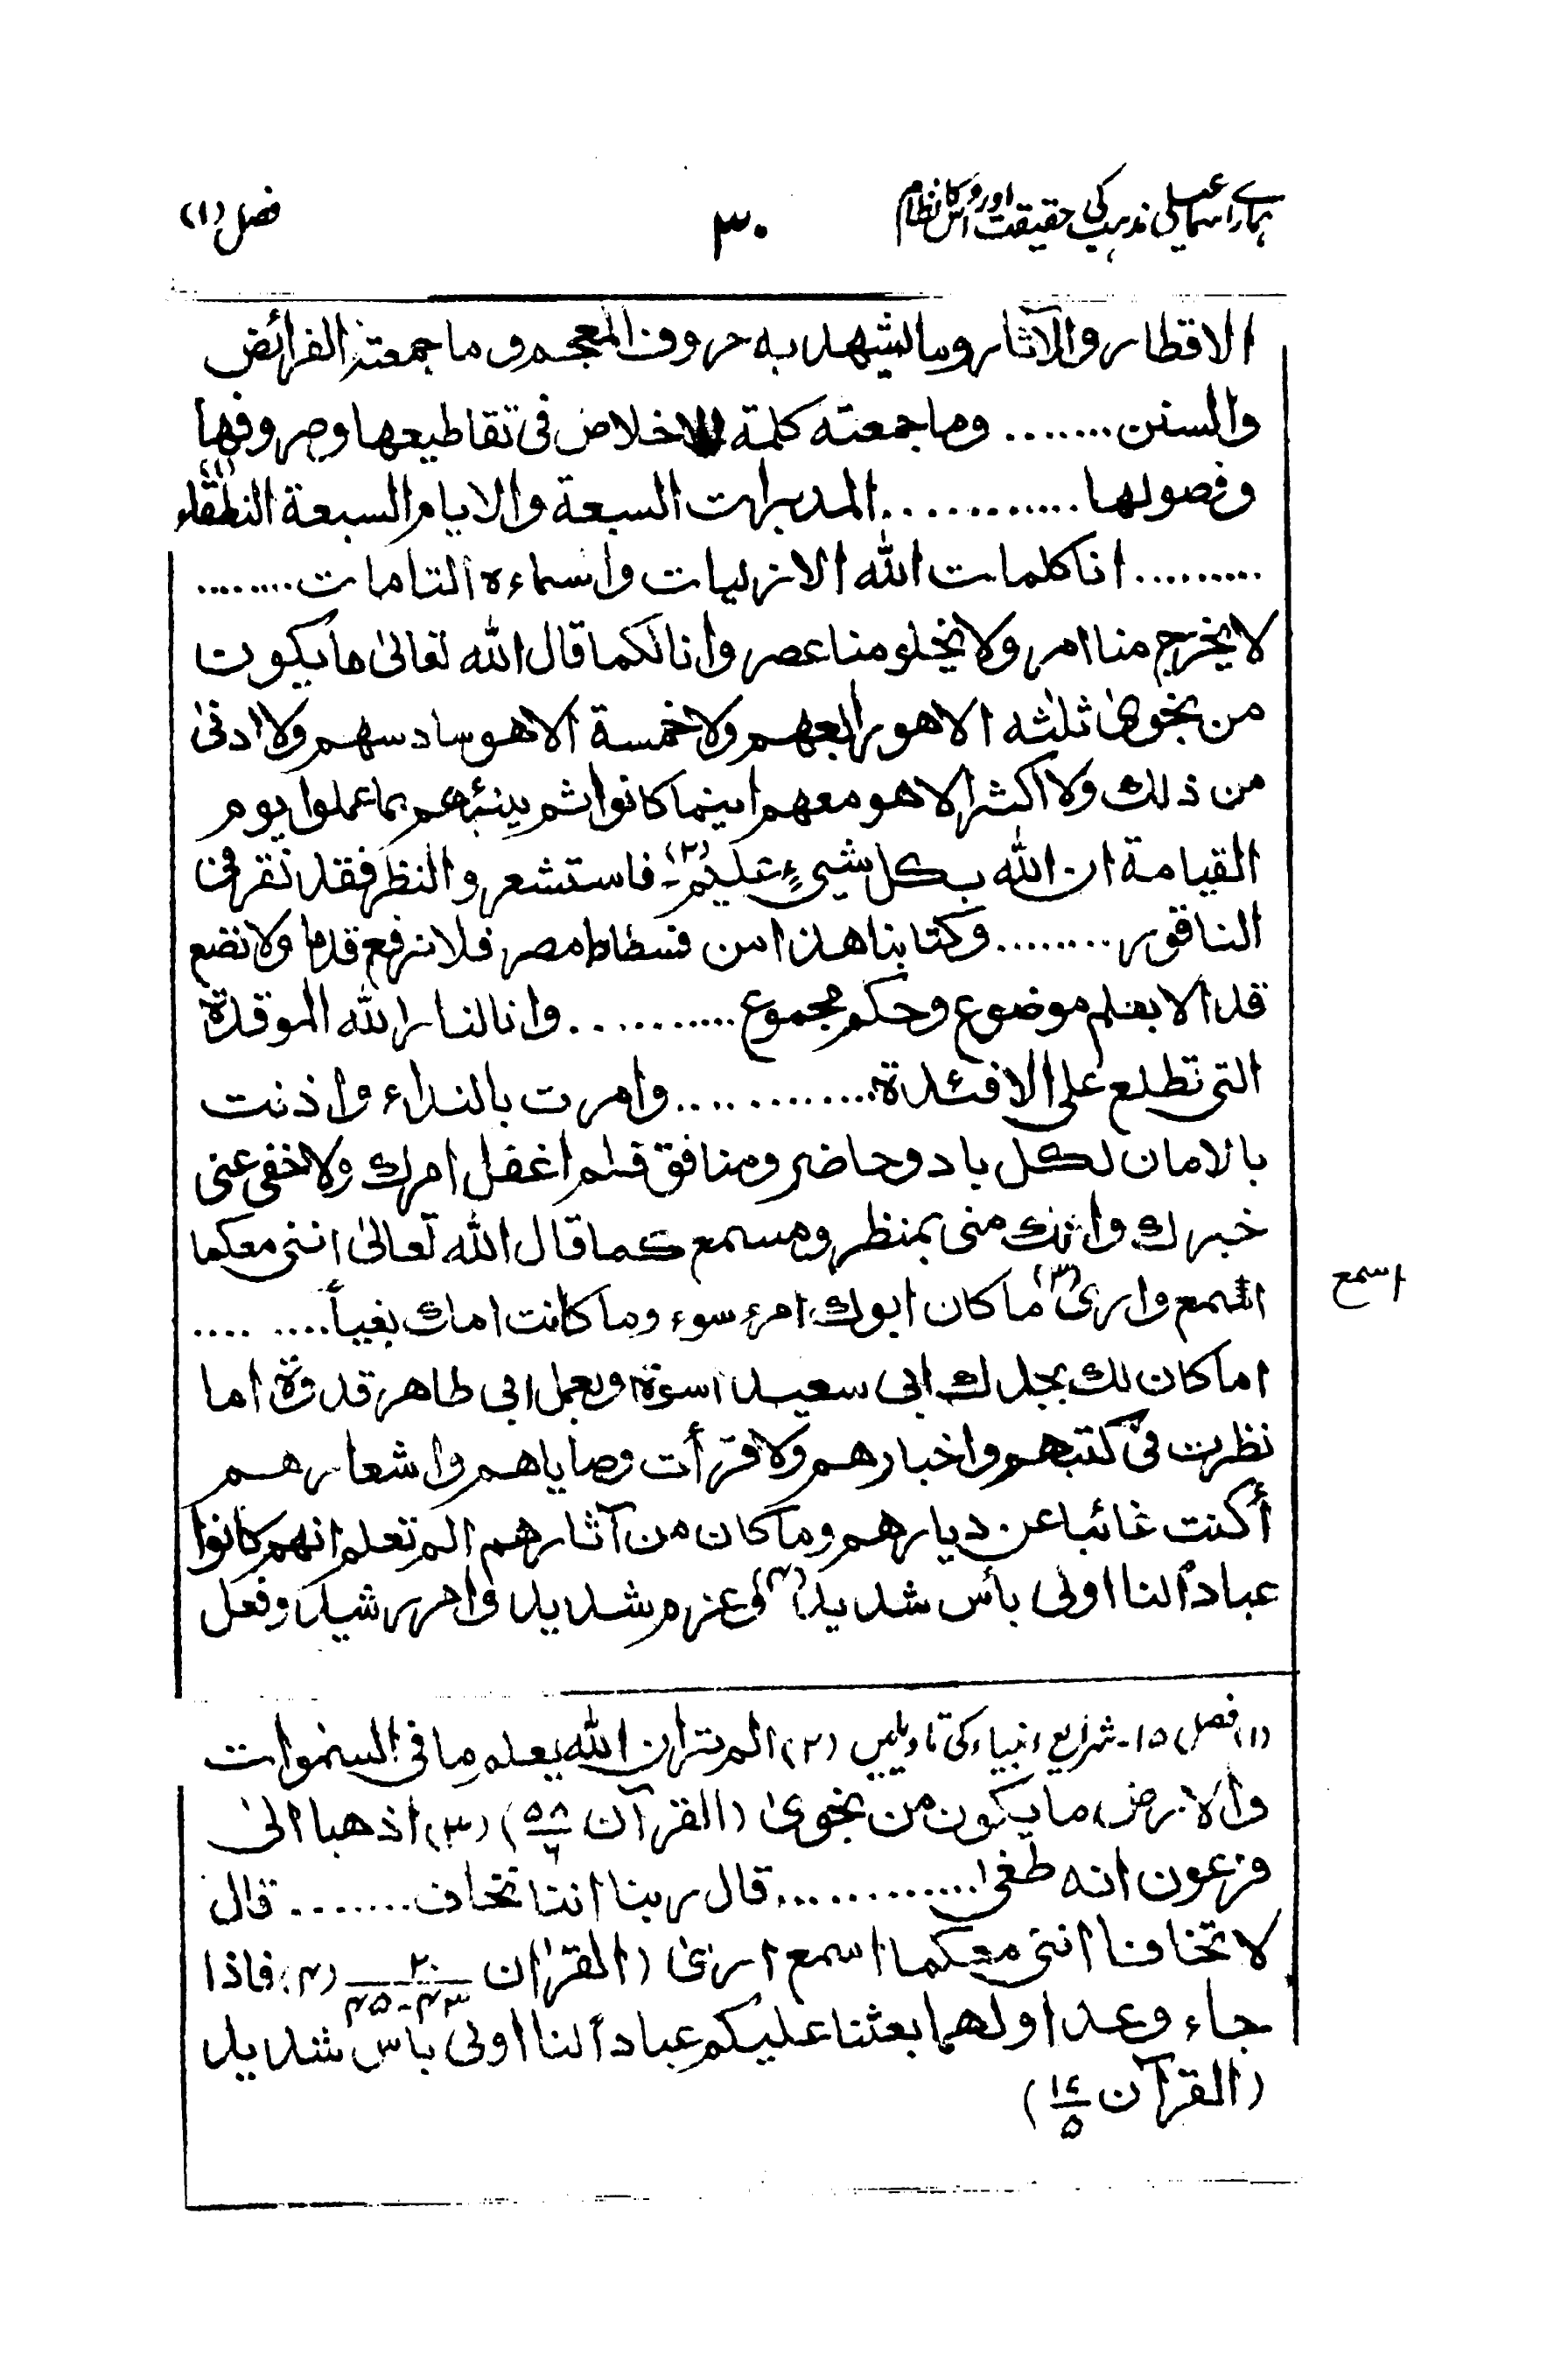 ہمارے اسماعیلی مذہب کی حقیقت اور اس کا نظام
۳۰
فصل (۱)
الاقطار والآثار وما یشهد به حروف المعجم و ما جمعته الفرائض
والسنن ....... وما جمعته كلمة الاخلاص فی تقاطیعها وحروفها
وفصولها ............ المدبرات السبعة والایام السبعة النطقاء (۱)
.......... انا كلمات الله الازلیات واسماءه التامات ........
لا یخرج منا امر ولا یخلو منا عصر وانا لكما قال الله تعالیٰ ما یكون
من نجویٰ ثلثه الا هو رابعهم ولا خمسة الا هو سادسهم ولا ادنیٰ
من ذلك ولا اكثر الا هو معهم اینما كانوا ثم ینبئهم بما عملوا یوم
القیامة ان الله بكل شیٍٔ علیم (۲)۔ فاستشعر والنظر فقد نقر فی
الناقور ........ وكتابنا هذا من فسطاط مصر فلا نرفع قدما ولا نضع
قدما الا بعلم موضوع وحكم مجموع ........... وانا لنار الله الموقدة
التی تطلع علی الافئدة ............ وامرت بالنداء واذنت
بالامان لكل باد وحاضر ومنافق فلم اغفل امرك ولا خفی عنی
خبرك وانك منی بمنظر ومسمع كما قال الله تعالیٰ اننی معكما
اسمع واریٰ (۳) ما كان ابوك امرء سوء وما كانت امك بغیاً .... ....
اسمع
اما كان لك بجدك ابی سعید اسوة وبعمل ابی طاهر قدوة اما
نظرت فی كتبهم واخبارهم ولا قرأت وصایاهم واشعارهم
أكنت غائبا عن دیارهم وما كان من آثارهم الم تعلم انهم كانوا
عباداً لنا اولی بأس شدید (۴) وعزم شدید وامر رشید وفعل
(۱) فصل ۱۵۔ شرایع انبیاء کی تاویلیں (۲) الم تر ان الله یعلم ما فی السمٰوات
والارض، ما یكون من نجویٰ (القرآن ۵۸/۷) (۳) اذهبا الیٰ
فرعون انه طغیٰ ............. قال ربنا اننا نخاف ........ قال
لا تخافا اننی معكما اسمع اریٰ (القرٰان ۲۰/۴۳-۴۵) (۴) فاذا
جاء وعد اولهما بعثنا علیكم عباداً لنا اولی باس شدید
(القرآن ۱۷/۵)